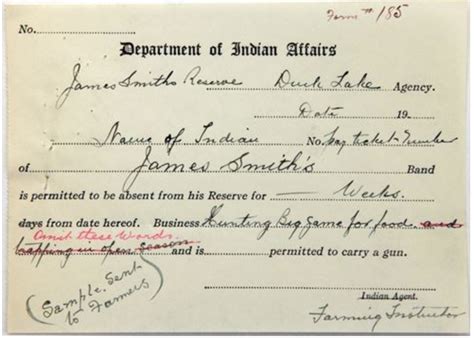 Form # 185
No.
Department of Indian Affairs
James Smiths Reserve Duck Lake Agency.
Date 19
Name of Indian No. pay ticket number
of James Smith's Band
is permitted to be absent from his Reserve for — Weeks.
days from date hereof. Business Hunting Big game for food and
Omit these Words.
trapping in open season and is permitted to carry a gun.
(Sample. Sent
to Farmers)
Indian Agent.
Farming Instructor